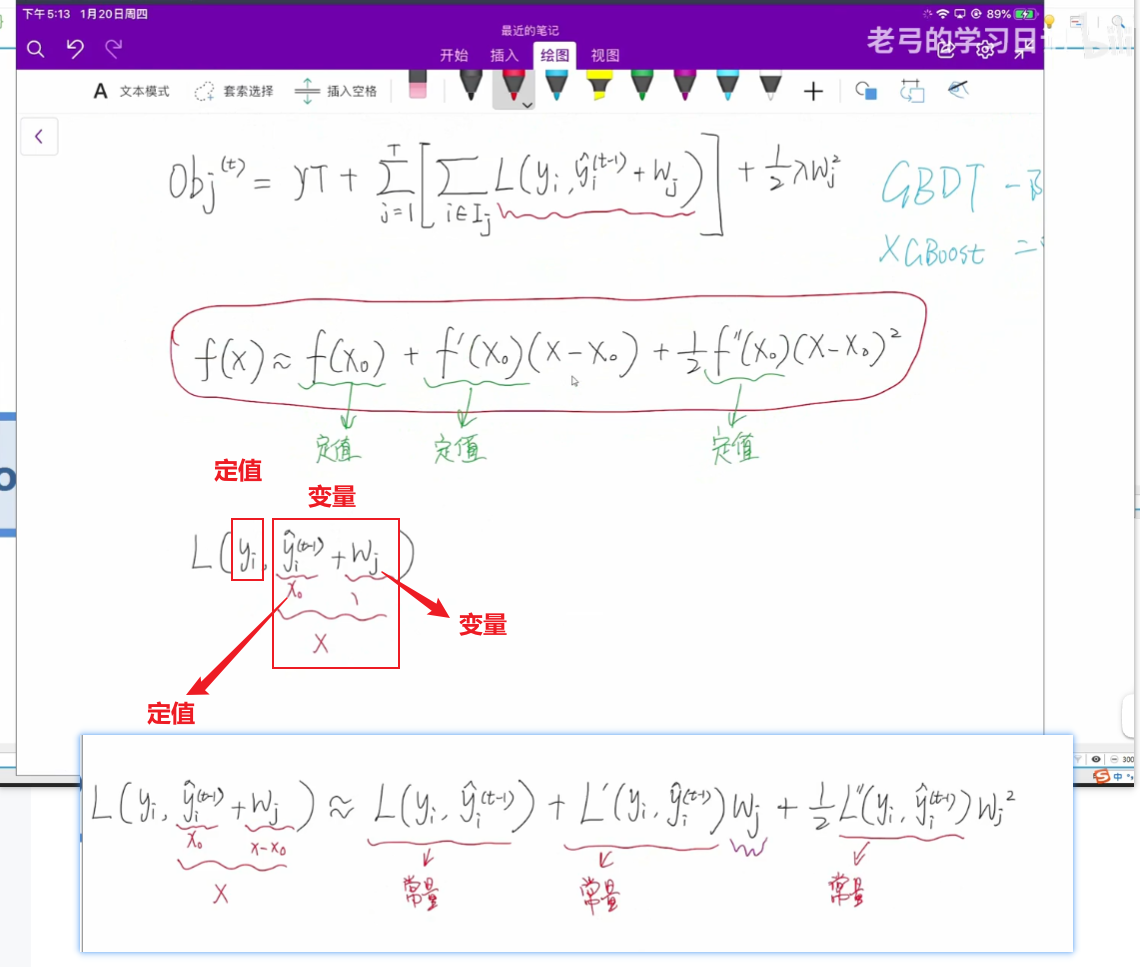 下午5:13 1月20日周四
最近的笔记
89%
老弓的学习日
开始 插入 绘图 视图
A 文本模式 套索选择 插入空格
Obj⁽ᵗ⁾ = γT + Σ_{j=1}^{T} [ Σ_{i∈I_j} L(y_i, ŷ_i^{(t-1)} + W_j) ] + ½λW_j²
GBDT -
XGBoost =
f(x) ≈ f(x₀) + f′(x₀)(x-x₀) + ½f″(x₀)(x-x₀)²
定值 定值 定值
定值
变量
L(y_i, ŷ_i^{(t-1)} + W_j)
x₀
变量
X
定值
300
中
L(y_i, ŷ_i^{(t-1)} + W_j) ≈ L(y_i, ŷ_i^{(t-1)}) + L′(y_i, ŷ_i^{(t-1)})W_j + ½L″(y_i, ŷ_i^{(t-1)})W_j²
x₀ x-x₀
X
常量 常量 常量